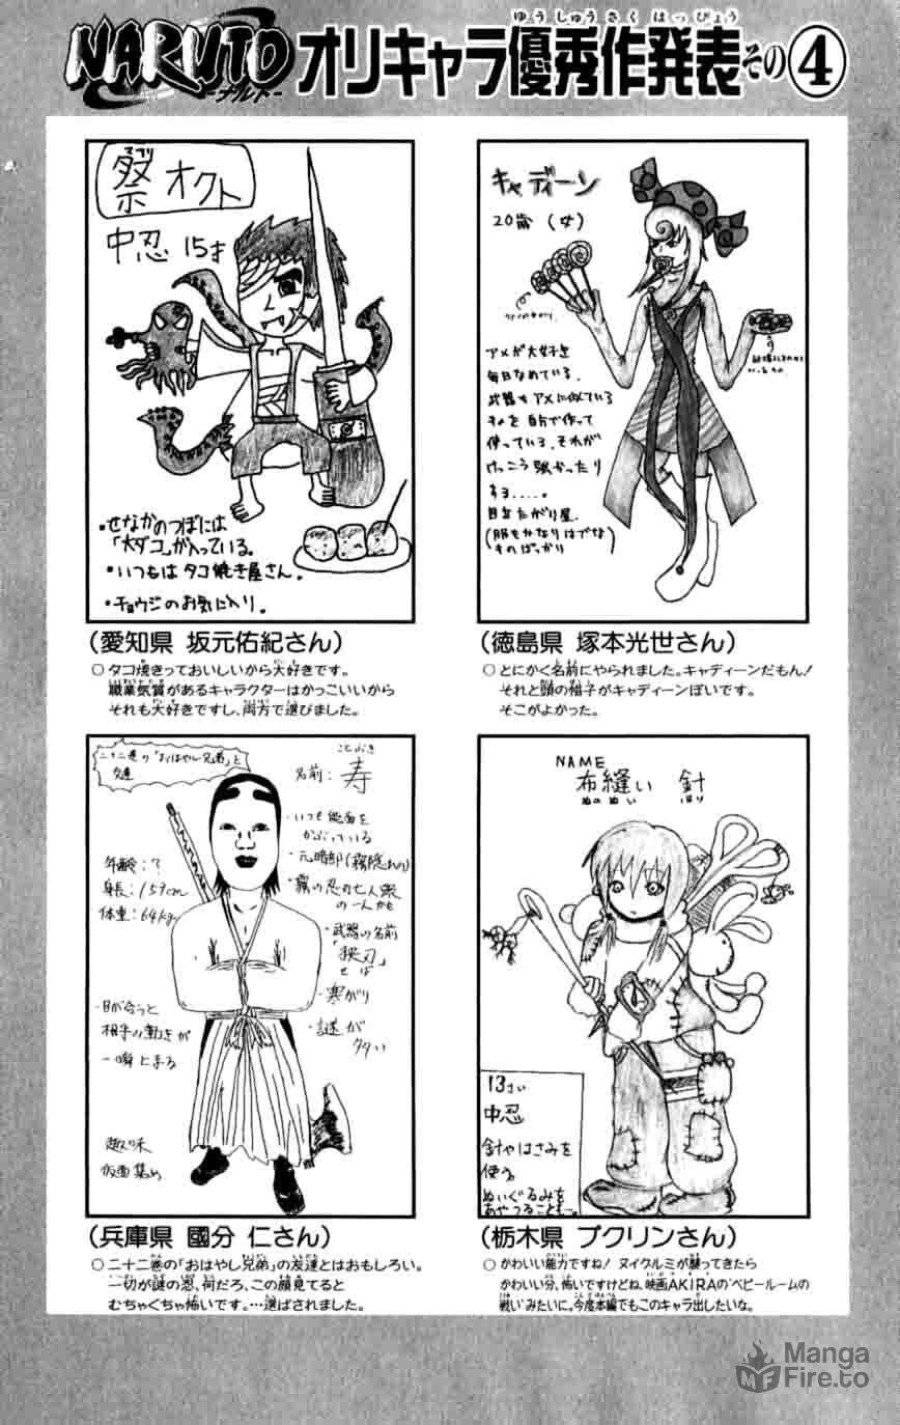 NARUTO
-ナルト-
オリキャラ優秀作発表その④
ゆうしゅうさくはっぴょう
祭オクト
まつり
中忍 15才
・せなかのつぼには
「大ダコ」が入っている。
・いつもは タコ焼き屋さん。
・チョウジのお気に入り。
(愛知県 坂元佑紀さん)
○タコ焼きっておいしいから大好きです。
職業気質があるキャラクターはかっこいいから
それも大好きですし、両方で選びました。
キャディーン
20歳 (女)
アメが大好き
毎日なめている。
武器もアメに似ている
ものを自分で作って
使っている。それが
けっこう強かったり
する……。
目立ちたがり屋。
(服もかなりはでな
ものばっかり)
(徳島県 塚本光世さん)
○とにかく名前にやられました。キャディーンだもん!
それと頭の帽子がキャディーンぽいです。
そこがよかった。
二十二巻の「おはやし兄弟」と
友達
ことぶき
名前:寿
・いつも能面を
かぶっている
・元暗部(霧隠れの)
・霧の忍の七人衆
の一人かも
・武器の名前
「狭刃」
せば
・寒がり
・謎が
多い
年齢:?
身長:157cm
体重:64kg
・目が合うと
相手の動きが
一瞬止まる
趣味
仮面集め
(兵庫県 國分 仁さん)
○二十二巻の「おはやし兄弟」の友達とはおもしろい。
一切が謎の忍、何だろ、この顔見てると
むちゃくちゃ怖いです。…選ばれました。
NAME
布縫い 針
ぬのぬい はり
13さい
中忍
針やはさみを
使う。
ぬいぐるみを
あやつることも…。
(栃木県 プクリンさん)
○かわいい能力ですね! ヌイグルミが襲ってきたら
かわいい分、怖いですけどね、映画AKIRAの“ベビールームの
戦い”みたいに。今度本編でもこのキャラ出したいな。
Manga
Fire.to
MF